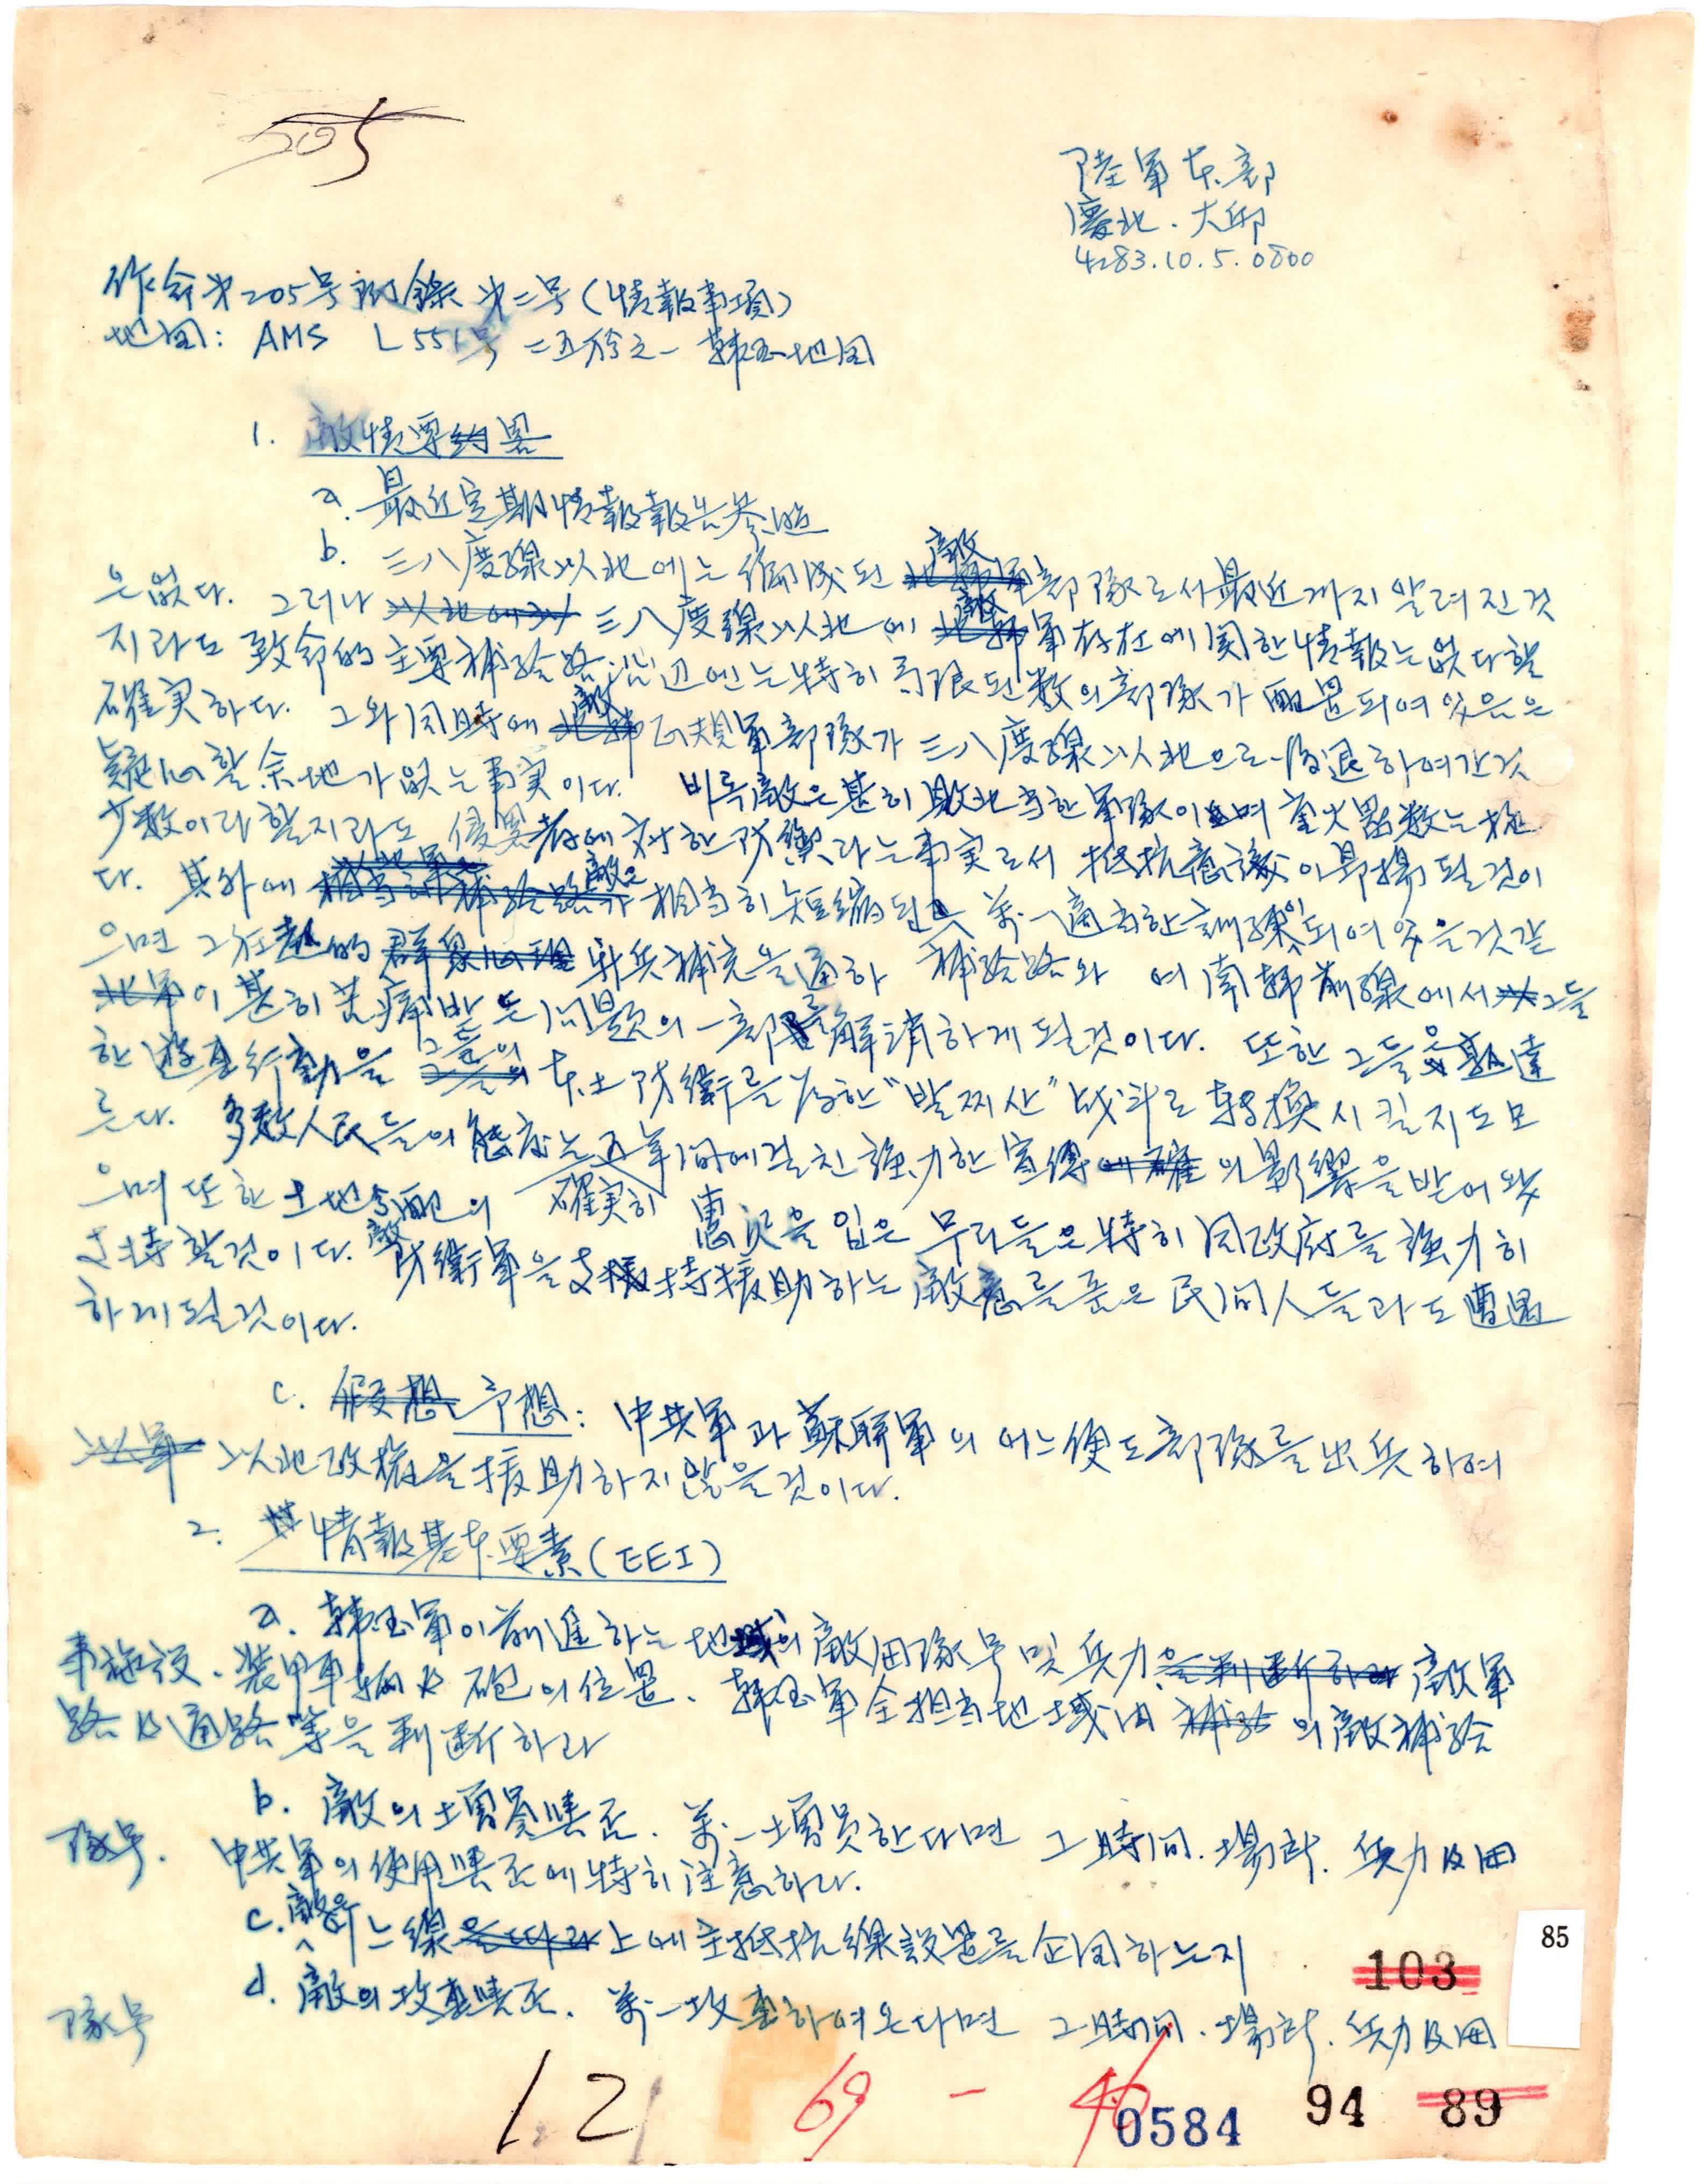 505
陸軍本部
慶北. 大邱
4283.10.5.0800
作命第205号 附錄 第二号 (情報事項)
地図: AMS L 551号 二五万分之一 韓国地図
1. 敵情要約
a. 最近定期情報報告参照
b. 三八度線以北에는 編成된 敵部隊로서 最近까지 알려진것
은 없다. 그러나 三八度線以北에 敵軍存在에 関한 情報는 없다할
지라도 致命的 主要補給路 沿辺에는 特히 有限된 数의 部隊가 配置되여 있음은
確実하다. 그와 同時에 敵正規軍部隊가 三八度線以北으로 後退하여간것
疑心할 余地가 없는 事実이다. 비록 敵은 甚히 敗北当한 軍隊이며 重火器数는 极
少数이라할지라도 侵畧者에 対한 防禦라는 事実로서 抵抗意識이 昂揚될것이
다. 其外에 敵은 相当히 短縮된 補給路와 万一適当한 訓練이 되여있은것같
으면 그 狂熱的 新兵補充을 通하여 南韓前線에서 그들
이 甚히 苦痛받든 問題의 一部를 解消하게 될것이다. 또한 그들은 熟達
한 遊擊行動을 그들의 本土防衛를 為한 "발찌산" 战斗로 転換시킬지도모
른다. 多数人民들의 態度는 五年间에걸친 強力한 宣傳의 影響을 받어왔
으며 또한 土地分配의 確実히 惠沢을 입은 무리들은 特히 同政府를 強力히
支持할것이다. 敵防衛軍을 支持援助하는 敵意를 품은 民间人들과도 遭遇
하게될것이다.
c. 予想: 中共軍과 蘇联軍의 어느便도 部隊를 出兵하여
以北政権을 援助하지 않을것이다.
2. 情報基本要素 (EEI)
a. 韓国軍이 前進하는 地域의 敵団隊号 및 兵力 敵軍
事施設. 装甲車輛及 砲의 位置. 韓国軍全担当地域内의 敵補給
路及通路等을 判断하라
b. 敵의 増員与否. 万一増員한다면 그 時间. 場所. 兵力及団
隊号. 中共軍의 使用与否에 特히 注意하라.
c. 敵은 어느線上에 主抵抗線設置를 企図하는지
d. 敵의 攻擊与否. 万一攻擊하여온다면 그 時间. 場所. 兵力及団
隊号
85
103
12
69 - 46
0584
94
89